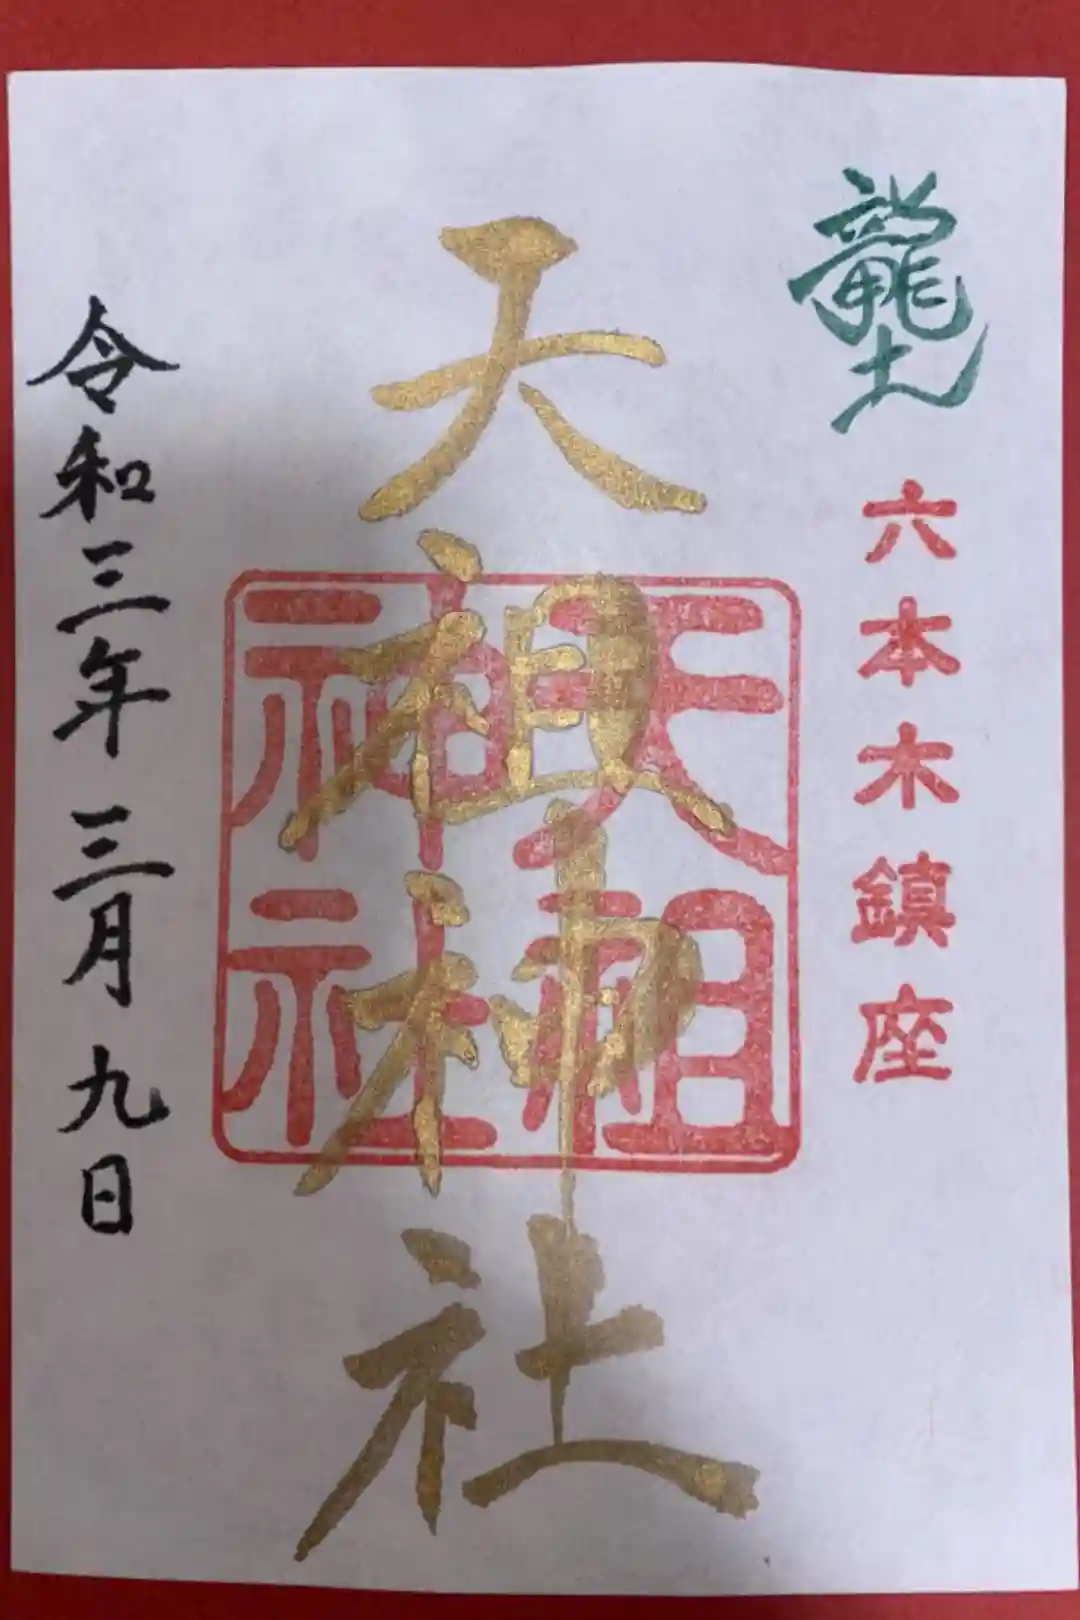 龍土
六本木鎮座
天祖神社
天祖
神社
令和三年三月九日